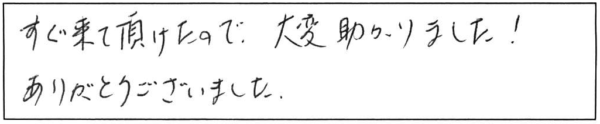 すぐ来て頂けたので、大変助かりました！
ありがとうございました.